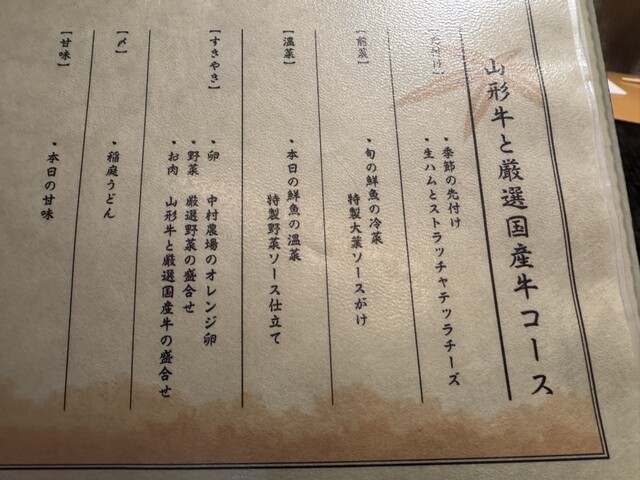 山形牛と厳選国産牛コース
【先付け】
・季節の先付け
・生ハムとストラッチャテッラチーズ
【前菜】
・旬の鮮魚の冷菜
特製大葉ソースがけ
【温菜】
・本日の鮮魚の温菜
特製野菜ソース仕立て
【すきやき】
・卵 中村農場のオレンジ卵
・野菜 厳選野菜の盛合せ
・お肉 山形牛と厳選国産牛の盛合せ
【〆】
・稲庭うどん
【甘味】
・本日の甘味